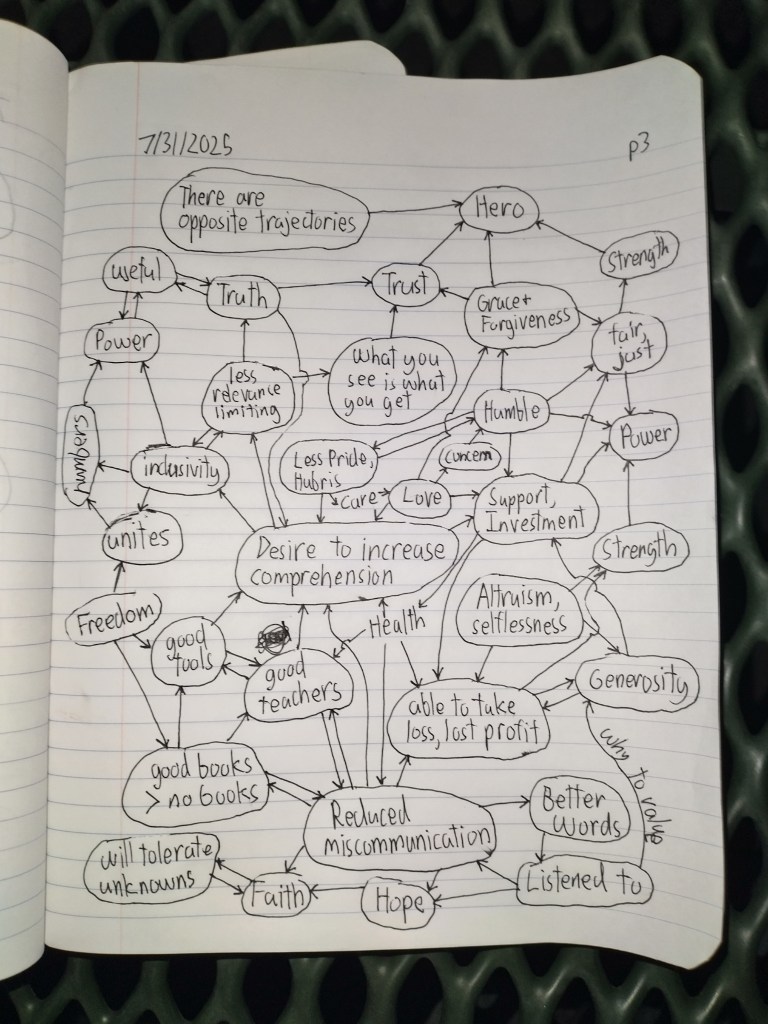 7/31/2025
p3
There are
opposite trajectories
Hero
Strength
useful
Truth
Trust
Grace+
Forgiveness
fair,
just
Power
less
relevance
limiting
What you
see is what
you get
Humble
Power
numbers
inclusivity
Less Pride,
Hubris
concern
care
Love
Support,
Investment
unites
Desire to increase
comprehension
Strength
Freedom
good
tools
Health
Altruism,
selflessness
good
teachers
Generosity
able to take
loss, lost profit
good books
> no books
why to value
Reduced
miscommunication
Better
Words
will tolerate
unknowns
Faith
Hope
Listened to